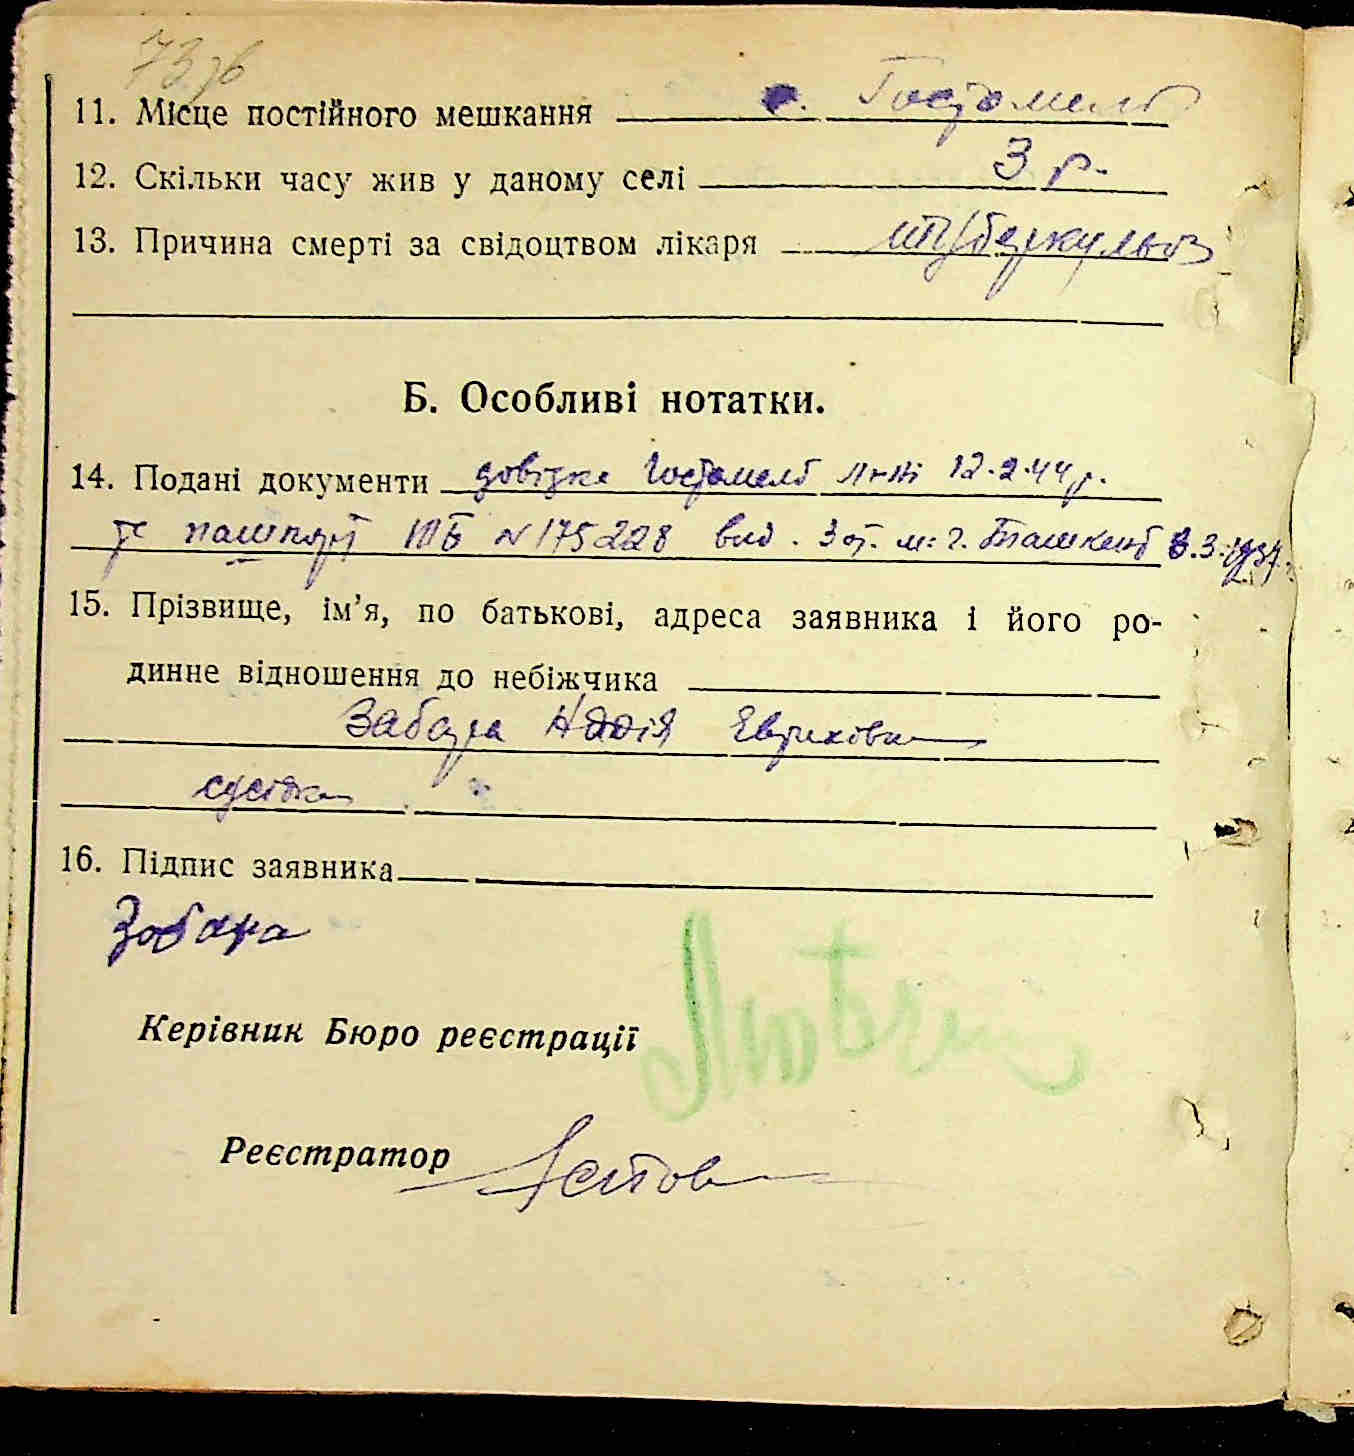 73зв
11. Місце постійного мешкання с. Гостомель
12. Скільки часу жив у даному селі 3 р.
13. Причина смерті за свідоцтвом лікаря туберкульоз
Б. Особливі нотатки.
14. Подані документи довідка Гостомель 12.2.44 р.
та пашпорт ТБ № 175228 вид. 3 від. м. г. Ташкент 3.1937
15. Прізвище, ім’я, по батькові, адреса заявника і його ро-
динне відношення до небіжчика
Забара Надія
сусідка
16. Підпис заявника
Забара
Керівник Бюро реєстрації
Реєстратор